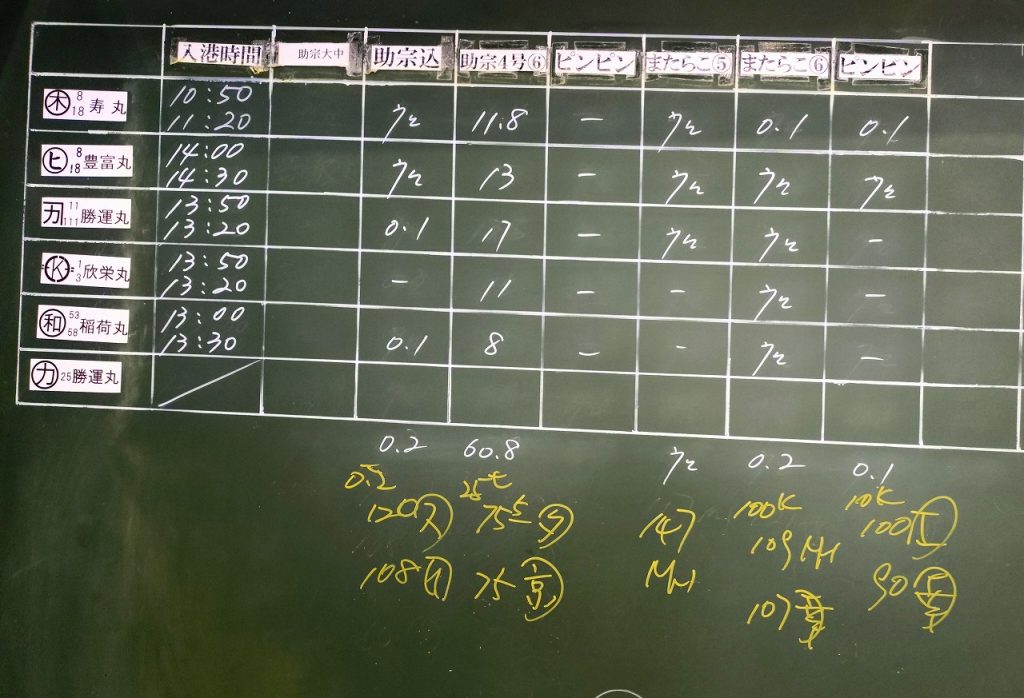 入港時間 助宗大中 助宗込 助宗4号⑥ ピンピン またらこ⑤ またらこ⑥ ピンピン
木 8 18 寿丸 10:50 11:20 ウと 11.8 − ウと 0.1 0.1
ヒ 8 18 豊富丸 14:00 14:30 ウと 13 − ウと ウと ウと
11 111 勝運丸 13:50 13:20 0.1 17 − ウと ウと −
K 1 3 欣栄丸 13:50 13:20 − 11 − − ウと −
和 53 58 稲荷丸 13:00 13:30 0.1 8 − − ウと −
カ 25 勝運丸
0.2 60.8 ウと 0.2 0.1
0.2 25t 100K 10K
120 75 147 109 100
108 75 京 107 90